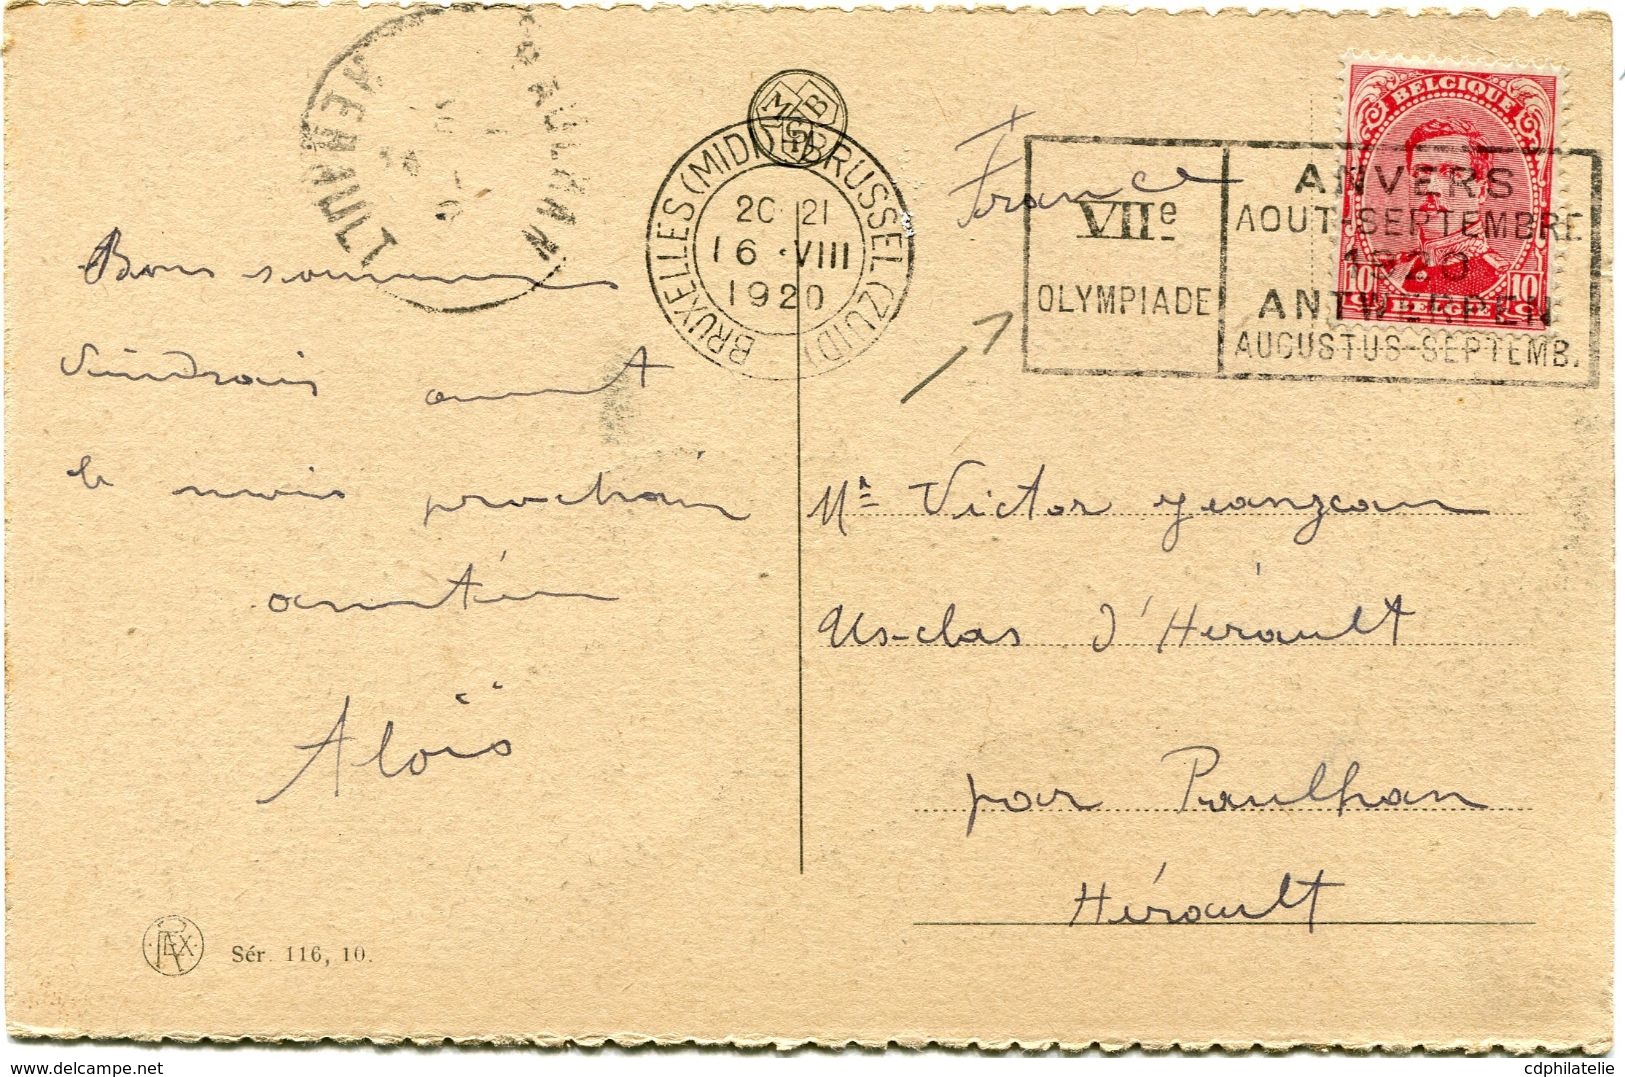 PAULHAN
HERAULT
M B
G P
BRUXELLES (MIDI) BRUSSEL (ZUID)
20 21
16 · VIII
1920
France
VIIe
OLYMPIADE
ANVERS
AOUT-SEPTEMBRE
1920
ANTWERPEN
AUGUSTUS-SEPTEMB.
BELGIQUE
10 c 10 c
BELGIE
Bons souvenirs
viendrais avant
le mois prochain
Aloïs
Mr Victor Jeanjean
Us-clas d'Hérault
par Paulhan
Hérault
Sér. 116, 10.
delcampe.net
cdphilatelie